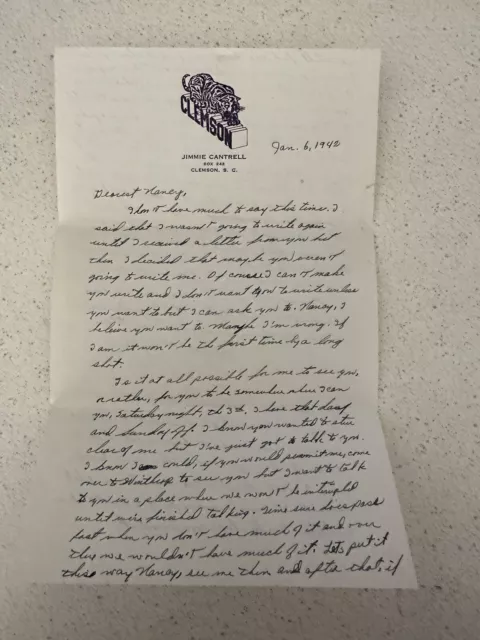 CLEMSON
JIMMIE CANTRELL
BOX 242
CLEMSON, S. C.
Jan. 6, 1942
Dearest Nancy,
I don't have much to say this time. I
said that I wasn't going to write again
until I received a letter from you but
then I decided that maybe you weren't
going to write me. Of course I can't make
you write and I don't want you to write unless
you want to but I can ask you to. Nancy, I
believe you want to. Maybe I'm wrong. If
I am it won't be the first time by a long
shot.
Is it at all possible for me to see you,
or rather, for you to be somewhere where I can
you, Saturday night, the I have that day
and Sunday off. I know you wanted to stee
clear of me but I've just got to talk to you.
I know I could, if you would permit me, come
over to Winthrop to see you but I want to talk
to you in a place where we won't be interrupted
until we're finished talking. Time sure does pass
fast when you don't have much of it and over
there we wouldn't have much of it. Let's put it
this way Nancy, see me then and after that, if